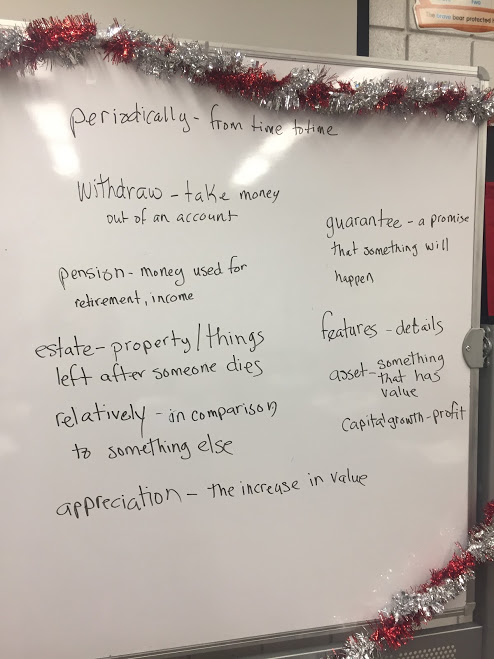 Two
The brave bear protected
periodically - from time to time
withdraw - take money
out of an account
pension - money used for
retirement, income
estate - property/things
left after someone dies
relatively - in comparison
to something else
appreciation - the increase in value
guarantee - a promise
that something will
happen
features - details
asset - something
that has
value
capital growth - profit